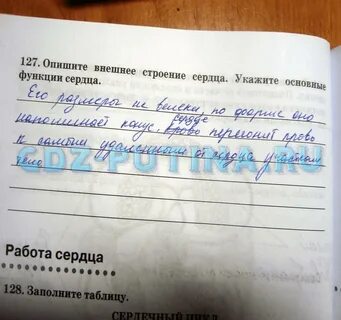 127. Опишите внешнее строение сердца. Укажите основные
функции сердца.
Его размеры не велики, по форме оно
напоминает конус. Сердце перегонят кровь
к самым удаленным от сердца участкам
тело
GDZ-PUTINA.RU
Работа сердца
128. Заполните таблицу.
СЕРДЕЧНЫЙ ЦИКЛ